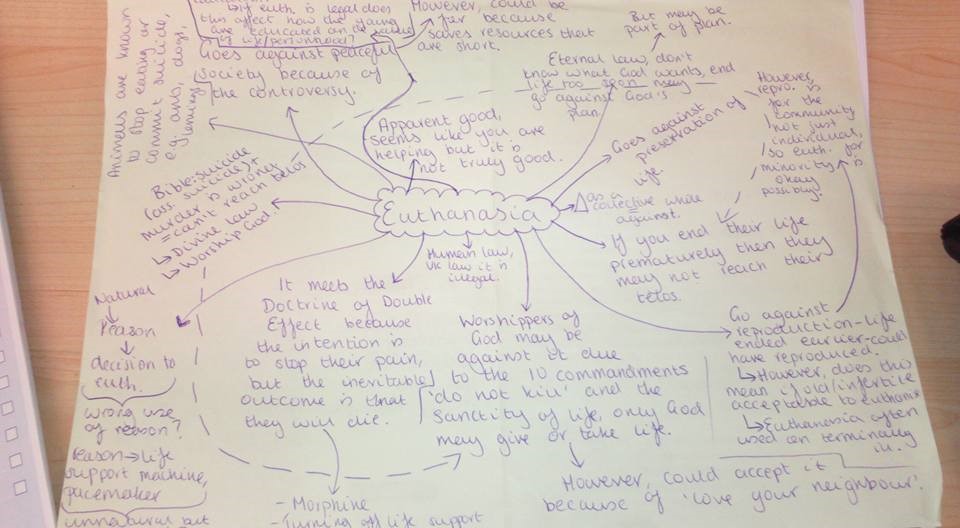 If euth. is legal does
this affect how the young
are educated on the value
of life/personhood?
However, could be
far because
saves resources that
are short.
But may be
part of plan.
Goes against peaceful
society because of
the controversy.
Eternal law, don't
know what God wants, end
life too soon may
go against God's
plan.
Animals are known
to stop eating or
commit suicide,
e.g. ants, dogs,
lemmings
Apparent good,
seems like you are
helping but it is
not truly good.
Goes against
preservation of
life.
However,
repro. is
for the
community
not just
individual,
so euth. for
minority is
okay
possibly.
Bible: suicide
(ass. suicide) +
murder is wrong
= can't reach telos
↳ Divine law
↳ Worship God.
Euthanasia
as a
collective whole
against.
If you end their life
prematurely then they
may not reach their
telos.
Human law,
UK law it is
illegal.
Natural
Reason
decision to
euth.
wrong use
of reason?
reason → life
support machine,
pacemaker
unnatural but
It meets the
Doctrine of Double
Effect because
the intention is
to stop their pain,
but the inevitable
outcome is that
they will die.
- Morphine
- Turning off life support
Worshippers of
God may be
against it due
to the 10 commandments
'do not kill' and the
Sanctity of life, only God
may give or take life.
However, could accept it
because of 'love your neighbour'.
Go against
reproduction - life
ended earlier - could
have reproduced.
↳ However, does this
mean if old/infertile
acceptable to euthanise
↳ Euthanasia often
used on terminally
ill.